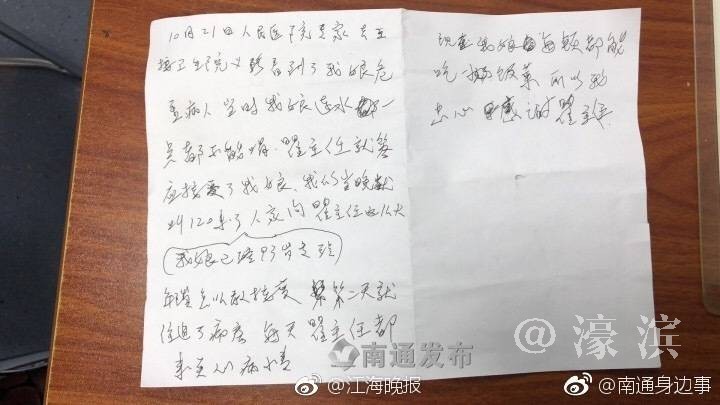 10月21日人民医院专家去五
接卫生院义诊看到了我娘危
重病人当时我娘连水都一
点都不能喝.瞿主任就答
应接受了我娘.我们当晚就
叫120车了人家问瞿主任这么大
(我娘已经93岁
年谨怎么敢接受 第二天就
住进了病房 每天瞿主任都
来关心病情
现在我娘每顿都能
吃一碗饭菜 所以我
忠心感谢瞿主任
南通发布
@濠滨
@江海晚报
@南通身边事